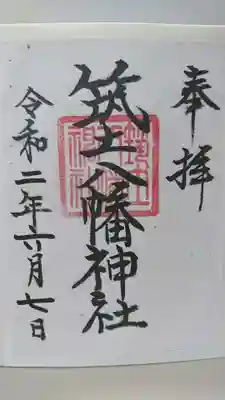 奉拝
筑土八幡神社
令和二年六月七日